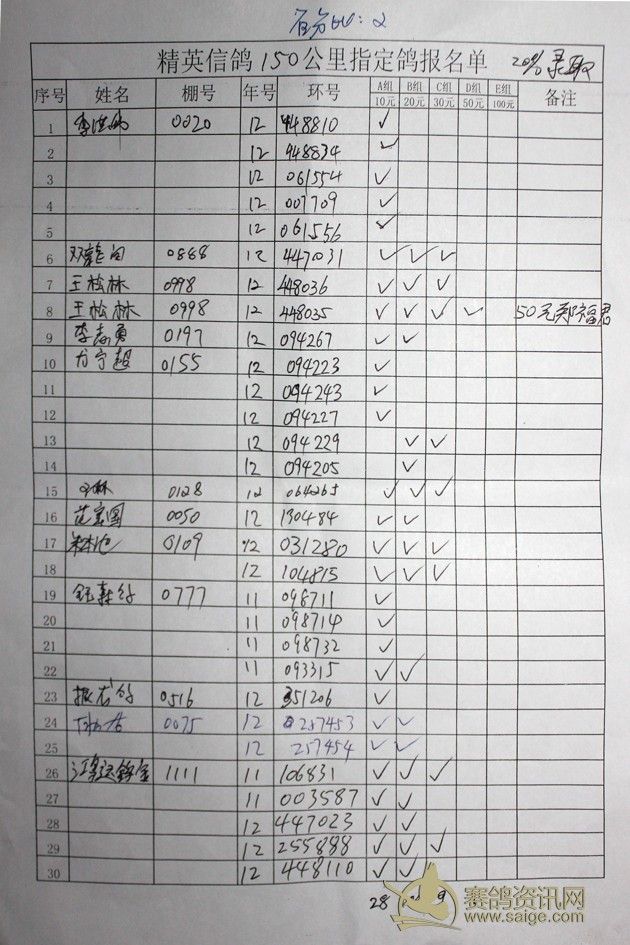 精英信鸽150公里指定鸽报名单 20%录取
序号 姓名 棚号 年号 环号 A组 10元 B组 20元 C组 30元 D组 50元 E组 100元 备注
1 0020 12 448810 ✓
2 12 948834 ✓
3 12 061554 ✓
4 12 007709 ✓
5 12 061556 ✓
6 0868 12 447031 ✓ ✓ ✓
7 王松林 0998 12 448036 ✓ ✓ ✓
8 王松林 0998 12 448035 ✓ ✓ ✓ ✓ 50元郑福君
9 李志勇 0197 12 094267 ✓ ✓
10 方宁超 0155 12 094223 ✓
11 12 094243 ✓
12 12 094227 ✓
13 12 094229 ✓ ✓
14 12 094205 ✓
15 0128 12 064265 ✓ ✓ ✓
16 范宝国 0050 12 130484 ✓ ✓
17 0109 12 031280 ✓ ✓ ✓
18 12 104815 ✓ ✓ ✓
19 0777 11 098711 ✓
20 11 098714 ✓
21 11 098732 ✓
22 11 093315 ✓ ✓
23 0516 12 351206 ✓
24 0075 12 257453 ✓ ✓
25 12 257454 ✓ ✓
26 1111 11 106831 ✓ ✓ ✓
27 11 003587 ✓ ✓
28 12 447023 ✓ ✓
29 12 255888 ✓ ✓ ✓
30 12 448110 ✓ ✓ ✓
28 9
赛鸽资讯网
www.saige.com